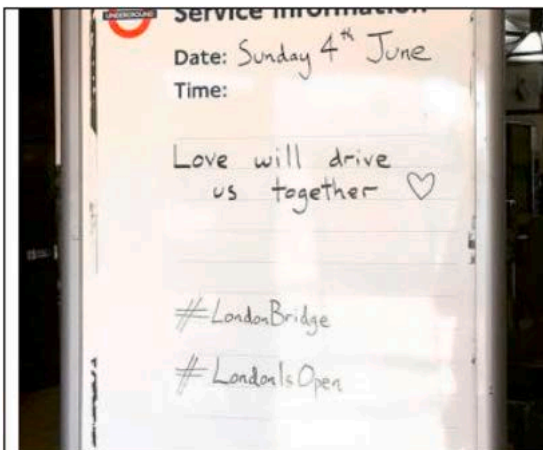 UNDERGROUND
Service Information
Date: Sunday 4th June
Time:
Love will drive
us together ♡
#LondonBridge
#LondonIsOpen